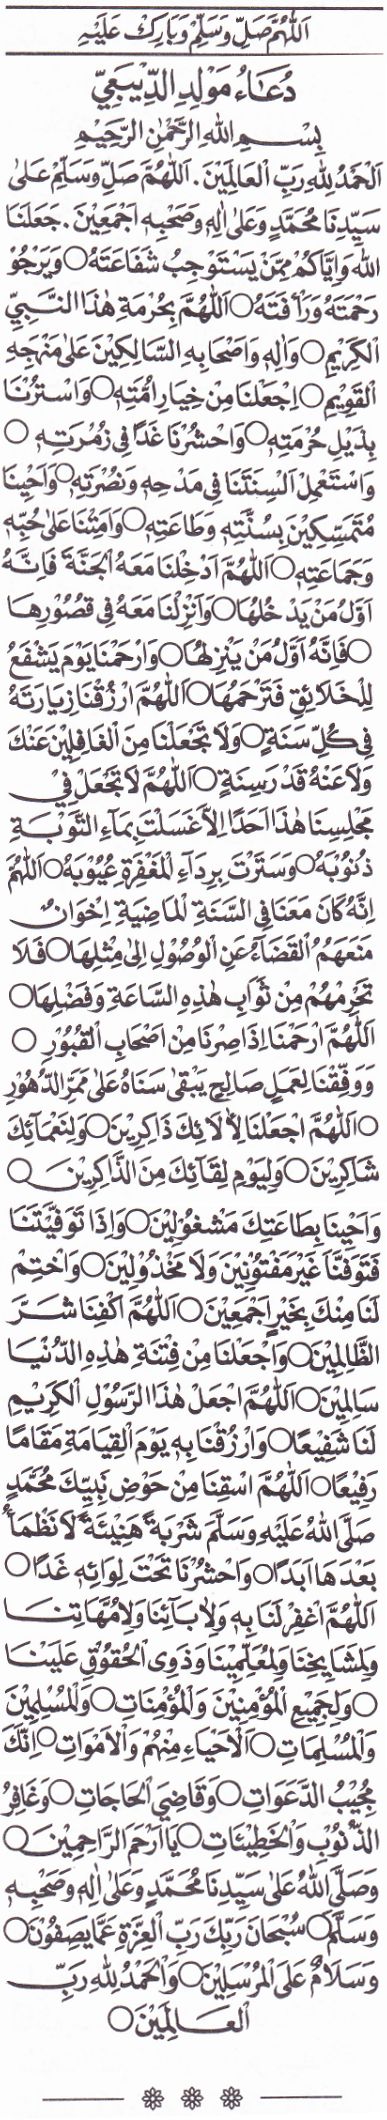 اَللّٰهُمَّ صَلِّ وَسَلِّمْ وَبَارِكْ عَلَيْهِ
دُعَاءُ مَوْلِدِ الدِّيْبَعِيِّ
بِسْمِ اللهِ الرَّحْمٰنِ الرَّحِيْمِ
اَلْحَمْدُ لِلهِ رَبِّ الْعَالَمِيْنَ. اَللّٰهُمَّ صَلِّ وَسَلِّمْ عَلىٰ
سَيِّدِنَا مُحَمَّدٍ وَعَلىٰ اٰلِهٖ وَصَحْبِهٖ اَجْمَعِيْنَ. جَعَلَنَا
اللهُ وَاِيَّاكُمْ مِمَّنْ يَسْتَوْجِبُ شَفَاعَتَهُ ○ وَيَرْجُوْ
رَحْمَتَهُ وَرَأْفَتَهُ ○ اَللّٰهُمَّ بِحُرْمَةِ هٰذَا النَّبِيِّ
الْكَرِيْمِ ○ وَاٰلِهٖ وَاَصْحَابِهِ السَّالِكِيْنَ عَلىٰ مَنْهَجِهِ
الْقَوِيْمِ ○ اِجْعَلْنَا مِنْ خِيَارِ اُمَّتِهٖ ○ وَاسْتُرْنَا
بِذَيْلِ حُرْمَتِهٖ ○ وَاحْشُرْنَا غَدًا فِى زُمْرَتِهٖ ○
وَاسْتَعْمِلْ اَلْسِنَتَنَا فِى مَدْحِهٖ وَنُصْرَتِهٖ ○ وَاَحْيِنَا
مُتَمَسِّكِيْنَ بِسُنَّتِهٖ وَطَاعَتِهٖ ○ وَاَمِتْنَا عَلىٰ حُبِّهٖ
وَجَمَاعَتِهٖ ○ اَللّٰهُمَّ اَدْخِلْنَا مَعَهُ الْجَنَّةَ فَاِنَّهُ
اَوَّلُ مَنْ يَدْخُلُهَا ○ وَاَنْزِلْنَا مَعَهُ فِى قُصُوْرِهَا
○ فَاِنَّهُ اَوَّلُ مَنْ يَنْزِلُهَا ○ وَارْحَمْنَا يَوْمَ يَشْفَعُ
لِلْخَلَائِقِ فَتَرْحَمُهَا ○ اَللّٰهُمَّ ارْزُقْنَا زِيَارَتَهُ
فِى كُلِّ سَنَةٍ ○ وَلَا تَجْعَلْنَا مِنَ الْغَافِلِيْنَ عَنْكَ
وَلَا عَنْهُ قَدْرَ سِنَةٍ ○ اَللّٰهُمَّ لَا تَجْعَلْ فِيْ
مَجْلِسِنَا هٰذَا اَحَدًا اِلَّا غَسَلْتَ بِمَاءِ التَّوْبَةِ
ذُنُوْبَهُ ○ وَسَتَرْتَ بِرِدَآءِ الْمَغْفِرَةِ عُيُوْبَهُ ○ اَللّٰهُمَّ
اِنَّهُ كَانَ مَعَنَا فِى السَّنَةِ الْمَاضِيَةِ اِخْوَانٌ
مَنَعَهُمُ الْقَضَآءُ عَنِ الْوُصُوْلِ اِلىٰ مِثْلِهَا ○ فَلَا
تَحْرِمْهُمْ مِنْ ثَوَابِ هٰذِهِ السَّاعَةِ وَفَضْلِهَا ○
اَللّٰهُمَّ ارْحَمْنَا اِذَا صِرْنَا مِنْ اَصْحَابِ الْقُبُوْرِ ○
وَوَفِّقْنَا لِعَمَلٍ صَالِحٍ يَبْقىٰ سَنَاهُ عَلىٰ مَمَرِّ الدُّهُوْرِ
○ اَللّٰهُمَّ اجْعَلْنَا لِاٰلَائِكَ ذَاكِرِيْنَ ○ وَلِنَعْمَآئِكَ
شَاكِرِيْنَ ○ وَلِيَوْمِ لِقَآئِكَ مِنَ الذَّاكِرِيْنَ ○
وَاَحْيِنَا بِطَاعَتِكَ مَشْغُوْلِيْنَ ○ وَاِذَا تَوَفَّيْتَنَا
فَتَوَفَّنَا غَيْرَ مَفْتُوْنِيْنَ وَلَا مَخْذُوْلِيْنَ ○ وَاخْتِمْ
لَنَا مِنْكَ بِخَيْرٍ اَجْمَعِيْنَ ○ اَللّٰهُمَّ اكْفِنَا شَرَّ
الظَّالِمِيْنَ ○ وَاجْعَلْنَا مِنْ فِتْنَةِ هٰذِهِ الدُّنْيَا
سَالِمِيْنَ ○ اَللّٰهُمَّ اجْعَلْ هٰذَا الرَّسُوْلَ الْكَرِيْمَ
لَنَا شَفِيْعًا ○ وَارْزُقْنَا بِهٖ يَوْمَ الْقِيَامَةِ مَقَامًا
رَفِيْعًا ○ اَللّٰهُمَّ اسْقِنَا مِنْ حَوْضِ نَبِيِّكَ مُحَمَّدٍ
صَلَّى اللهُ عَلَيْهِ وَسَلَّمَ شَرْبَةً هَنِيْئَةً لَا نَظْمَأُ
بَعْدَهَا اَبَدًا ○ وَاحْشُرْنَا تَحْتَ لِوَائِهٖ غَدًا ○
اَللّٰهُمَّ اغْفِرْ لَنَا بِهٖ وَلِاٰبَآئِنَا وَلِاُمَّهَاتِنَا
وَلِمَشَايِخِنَا وَلِمُعَلِّمِيْنَا وَذَوِى الْحُقُوْقِ عَلَيْنَا
○ وَلِجَمِيْعِ الْمُؤْمِنِيْنَ وَالْمُؤْمِنَاتِ ○ وَالْمُسْلِمِيْنَ
وَالْمُسْلِمَاتِ ○ اَلْاَحْيَاءِ مِنْهُمْ وَالْاَمْوَاتِ ○ اِنَّكَ
مُجِيْبُ الدَّعَوَاتِ ○ وَقَاضِيَ الْحَاجَاتِ ○ وَغَافِرُ
الذُّنُوْبِ وَالْخَطِيْئَاتِ ○ يَا اَرْحَمَ الرَّاحِمِيْنَ ○
وَصَلَّى اللهُ عَلىٰ سَيِّدِنَا مُحَمَّدٍ وَعَلىٰ اٰلِهٖ وَصَحْبِهٖ
وَسَلَّمَ ○ سُبْحَانَ رَبِّكَ رَبِّ الْعِزَّةِ عَمَّا يَصِفُوْنَ ○
وَسَلَامٌ عَلَى الْمُرْسَلِيْنَ ○ وَالْحَمْدُ لِلهِ رَبِّ
الْعَالَمِيْنَ ○